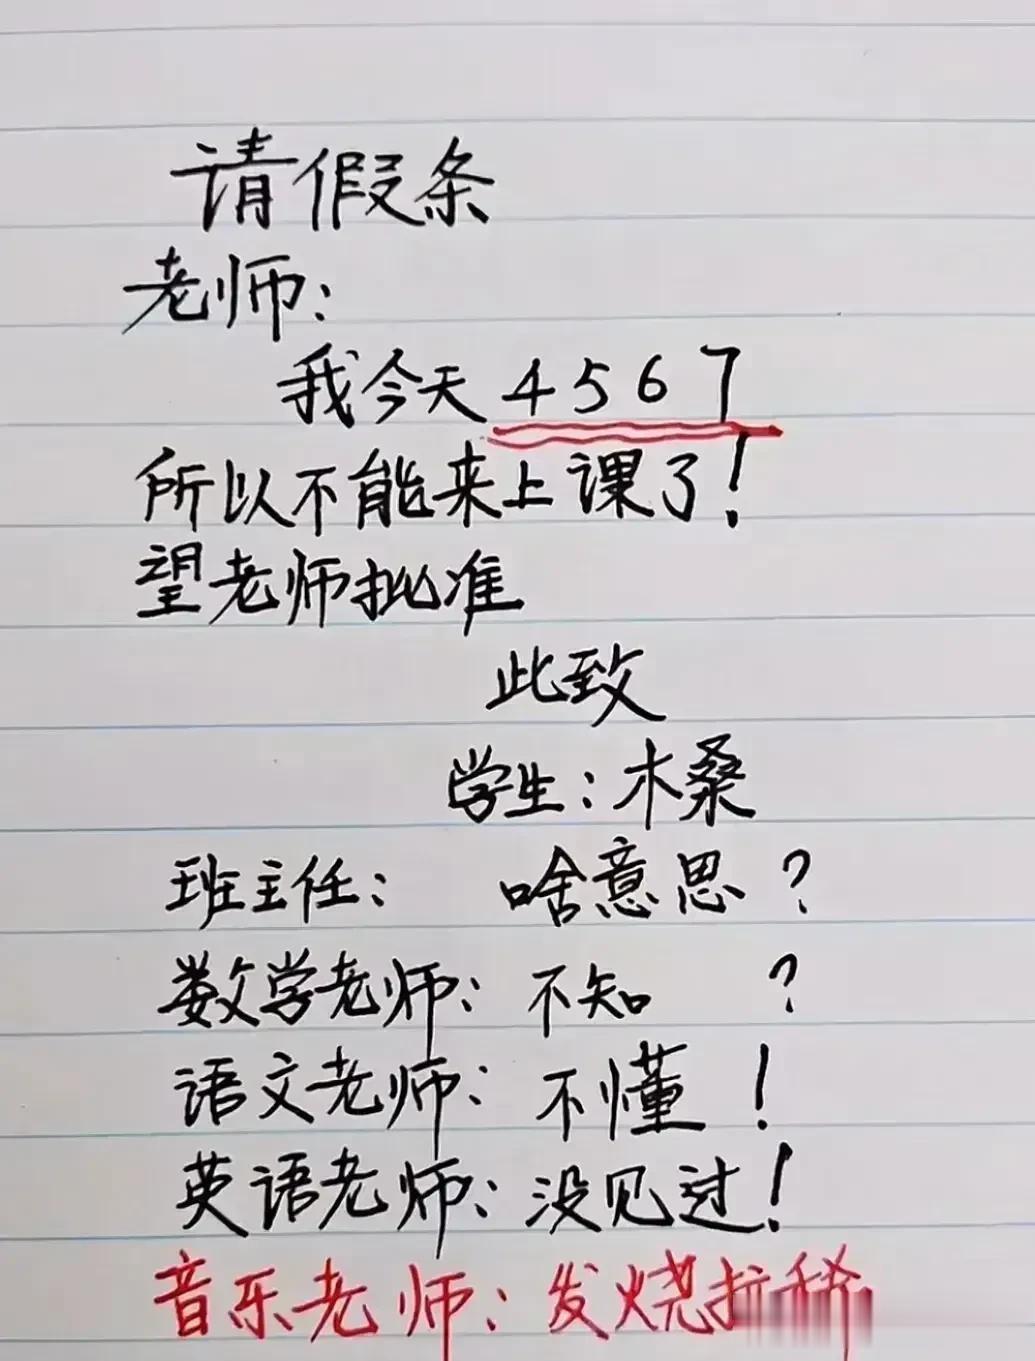 请假条
老师：
我今天4567
所以不能来上课了！
望老师批准
此致
学生：木桑
班主任： 啥意思？
数学老师：不知 ？
语文老师：不懂！
英语老师：没见过！
音乐老师：发烧拉稀